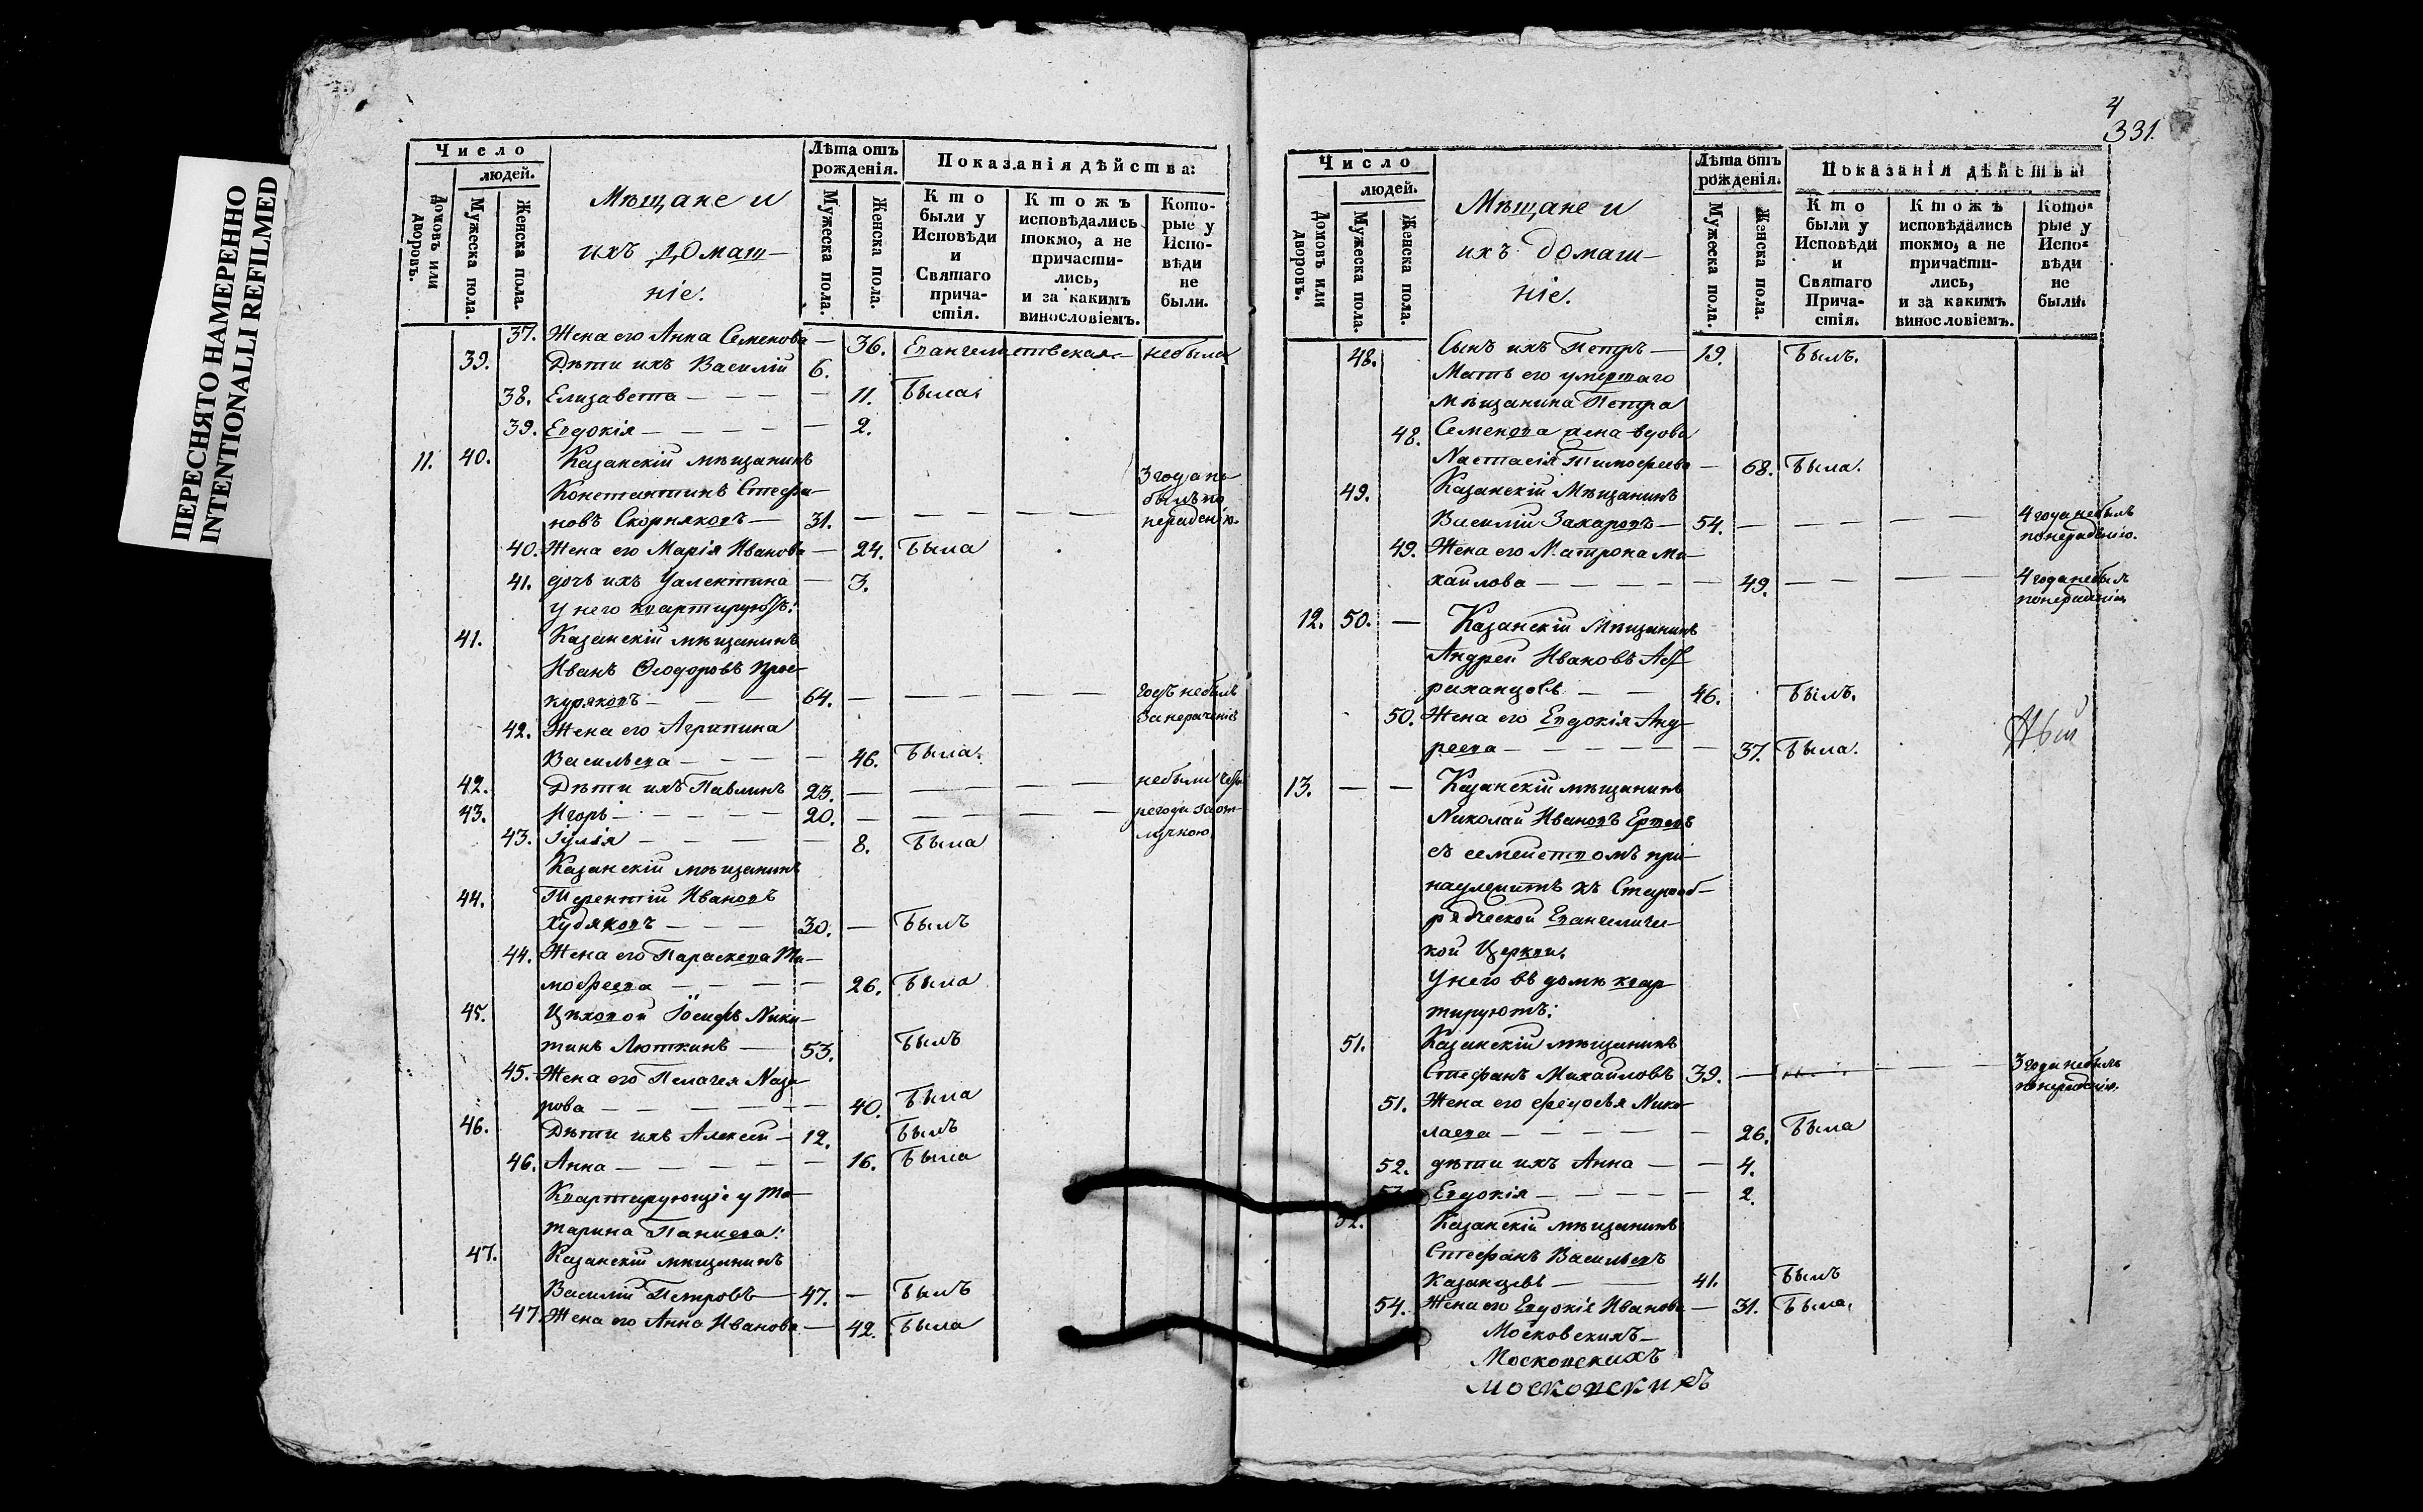 ПЕРЕСНЯТО НАМЕРЕННО
INTENTIONALLI REFILMED
Число
людей.
Домовъ или дворовъ.
Мужеска пола.
Женска пола.
Мѣщане и
ихъ домаш-
ніе.
Лѣта отъ рожденія.
Мужеска пола.
Женска пола.
Показанія дѣйства:
Кто были у Исповѣди и Святаго прича- стія.
Ктожъ исповѣдались токмо, а не причасти- лись, и за какимъ винословіемъ.
Кото- рые у Испо- вѣди не были.
37. Жена его Анна Семенова — 36. небыла
39. Дѣти ихъ Василій 6.
38. Елизавета — — — — 11. Была.
39. Евдокія — — — — — 2.
11. 40. Казанскій мѣщанинъ
Константинъ Стефа-
новъ Скорняковъ — 31. — — — — — 3 года не былъ по нерадѣнію.
40. Жена его Марія Иванова — 24. Была
41. дочь ихъ Уалентина — 3.
У него квартируютъ:
41. Казанскій мѣщанинъ
Иванъ Ѳеодоровъ Прос-
куряковъ — — — 64. — — — — — годъ небылъ
42. Жена его Агрипина
Васильева — — — — 46. Была.
42. Дѣти ихъ Павлинъ 23. — — — — — небыли четы-
43. Игорь — — — — 20. — — — — — ре года за от-
лучкою
43. Іулія — — — — 8. Была
Казанскій мѣщанинъ
44. Терентій Ивановъ
Худяковъ — — — 30. — Былъ
44. Жена его Параскева Ти-
мофеева — — — — 26. Была
45. Цѣховой Іосифъ Ники-
тинъ Люткинъ — 53. Былъ
45. Жена его Пелагея Наза-
рова — — — — — 40. Была
46. Дѣти ихъ Алексій — 12. Былъ
46. Анна — — — — — 16. Была
Квартирующіе у та-
тарина
47. Казанскій мѣщанинъ
Василій Петровъ — 47. — Былъ
47 Жена его Анна Иванова — 42. Была
4
331.
Число
людей.
Домовъ или дворовъ.
Мужеска пола.
Женска пола.
Мѣщане и
ихъ домаш-
ніе.
Лѣта отъ рожденія.
Мужеска пола.
Женска пола.
Показанія дѣйства
Кто были у Исповѣди и Святаго Прича- стія.
Ктожъ исповѣдались токмо, а не причасти- лись, и за какимъ винословіемъ.
Кото- рые у Испо- вѣди не были.
48. Сынъ ихъ Петръ — 19. Былъ.
Мать его умершаго
мѣщанина Петра
48. Семенова жена вдова
Настасія Тимофеева — 68. Была.
49. Казанскій Мѣщанинъ
Василій Захаровъ — 54. — — — — — 4 года небылъ
по нерадѣнію.
49. Жена его Матрона Ми-
хаилова — — — — — 49. — — — — 4 года небыла
по нерадѣнію
12. 50. — Казанскій Мѣщанинъ
Андрей Ивановъ Аст-
раханцовъ — — 46. Былъ.
50. Жена его Евдокія Анд-
реева — — — — — — 37. Была.
13. — — Казанскій мѣщанинъ
Николай Ивановъ
съ семействомъ при-
надлежитъ къ Старооб-
рядческой Евангеличес-
кой Церкви.
У него въ домѣ квар
тируютъ:
51. Казанскій мѣщанинъ
Стефанъ Михайловъ 39. — — — 3 года небылъ
по нерадѣнію.
51. Жена его Ѳедосья Нико
лаева — — — — — 26. Была
52. дѣти ихъ Анна — — 4.
53. Евдокія — — — — — 2.
52. Казанскій мѣщанинъ
Стефанъ Васильевъ
Казанцовъ — — 41. Былъ
54. Жена его Евдокія Иванова — 31. Была.
Московскихъ —
Московскихъ
Московскихъ